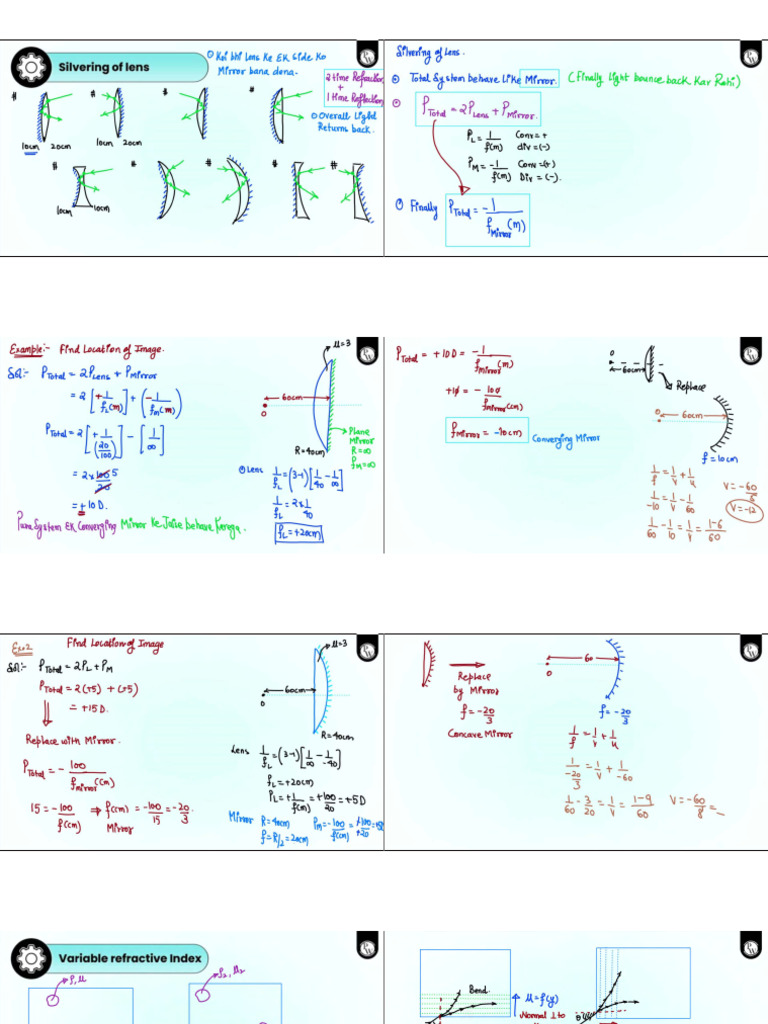 Silvering of lens
① Koi bhi Lens Ke EK side Ko
Mirror bana dena.
2 time Refraction
+
1 time Reflection
① Overall Light
Returns back.
#
#
#
#
10cm 20cm
10cm 20cm
#
#
#
#
#
10cm 10cm
Silvering of Lens.
Total System behave Like Mirror. (Finally light bounce back Kar Rahi)
P_Total = 2P_Lens + P_Mirror.
P_L = 1/f(m) Conv = + div = (-)
P_M = -1/f(m) Conv = (+) Div = (-).
Finally P_Total = -1/f_Mirror (m)
Example:- Find Location of Image.
Sol:- P_Total = 2P_Lens + P_Mirror
= 2[+1/f_L(m)] + (-1/f_m(m))
P_Total = 2[+1/(20/100)] - [1/∞]
= 2×100/20 5
= +10D.
Pura System EK Converging Mirror Ke Jaise behave Karega.
μ=3
60cm
O
R=40cm
Plane
Mirror
R=∞
f_M=∞
① Lens 1/f_L = (3-1)[1/40 - 1/∞]
1/f_L = 2×1/40
f_L = +20cm
P_Total = +10D = -1/f_mirror(m)
+10 = -100/f_mirror(cm)
f_Mirror = -10cm Converging Mirror
O
60cm
Replace
60cm
O
f=10cm
1/f = 1/v + 1/u
1/-10 = 1/v - 1/60
1/60 - 1/10 = 1/v = 1-6/60
v = -60/5
v = -12
Ex:2 Find Location of Image
Sol:- P_Total = 2P_L + P_M
P_Total = 2(+5) + (+5)
= +15D.
Replace with Mirror.
P_Total = -100/f_mirror(cm)
15 = -100/f(cm) ⇒ f(cm) = -100/15 = -20/3
Mirror
μ=3
60cm
O
R=40cm
Lens 1/f_L = (3-1)[1/∞ - 1/-40]
f_L = +20cm
P_L = +1/f(m) = +100/20 = +5D
Mirror R=40cm P_M = -100/f(cm) = +100/+20 = +5D
f = R/2 = 20cm
Replace
by Mirror
f = -20/3
Concave Mirror
60
O
f = -20/3
1/f = 1/v + 1/u
1/(-20/3) = 1/v + 1/-60
1/60 - 3/20 = 1/v = 1-9/60 v = -60/8 =
Variable refractive Index
P, μ
P₂, μ₂
Bend
μ = f(y)
Normal ⊥ to